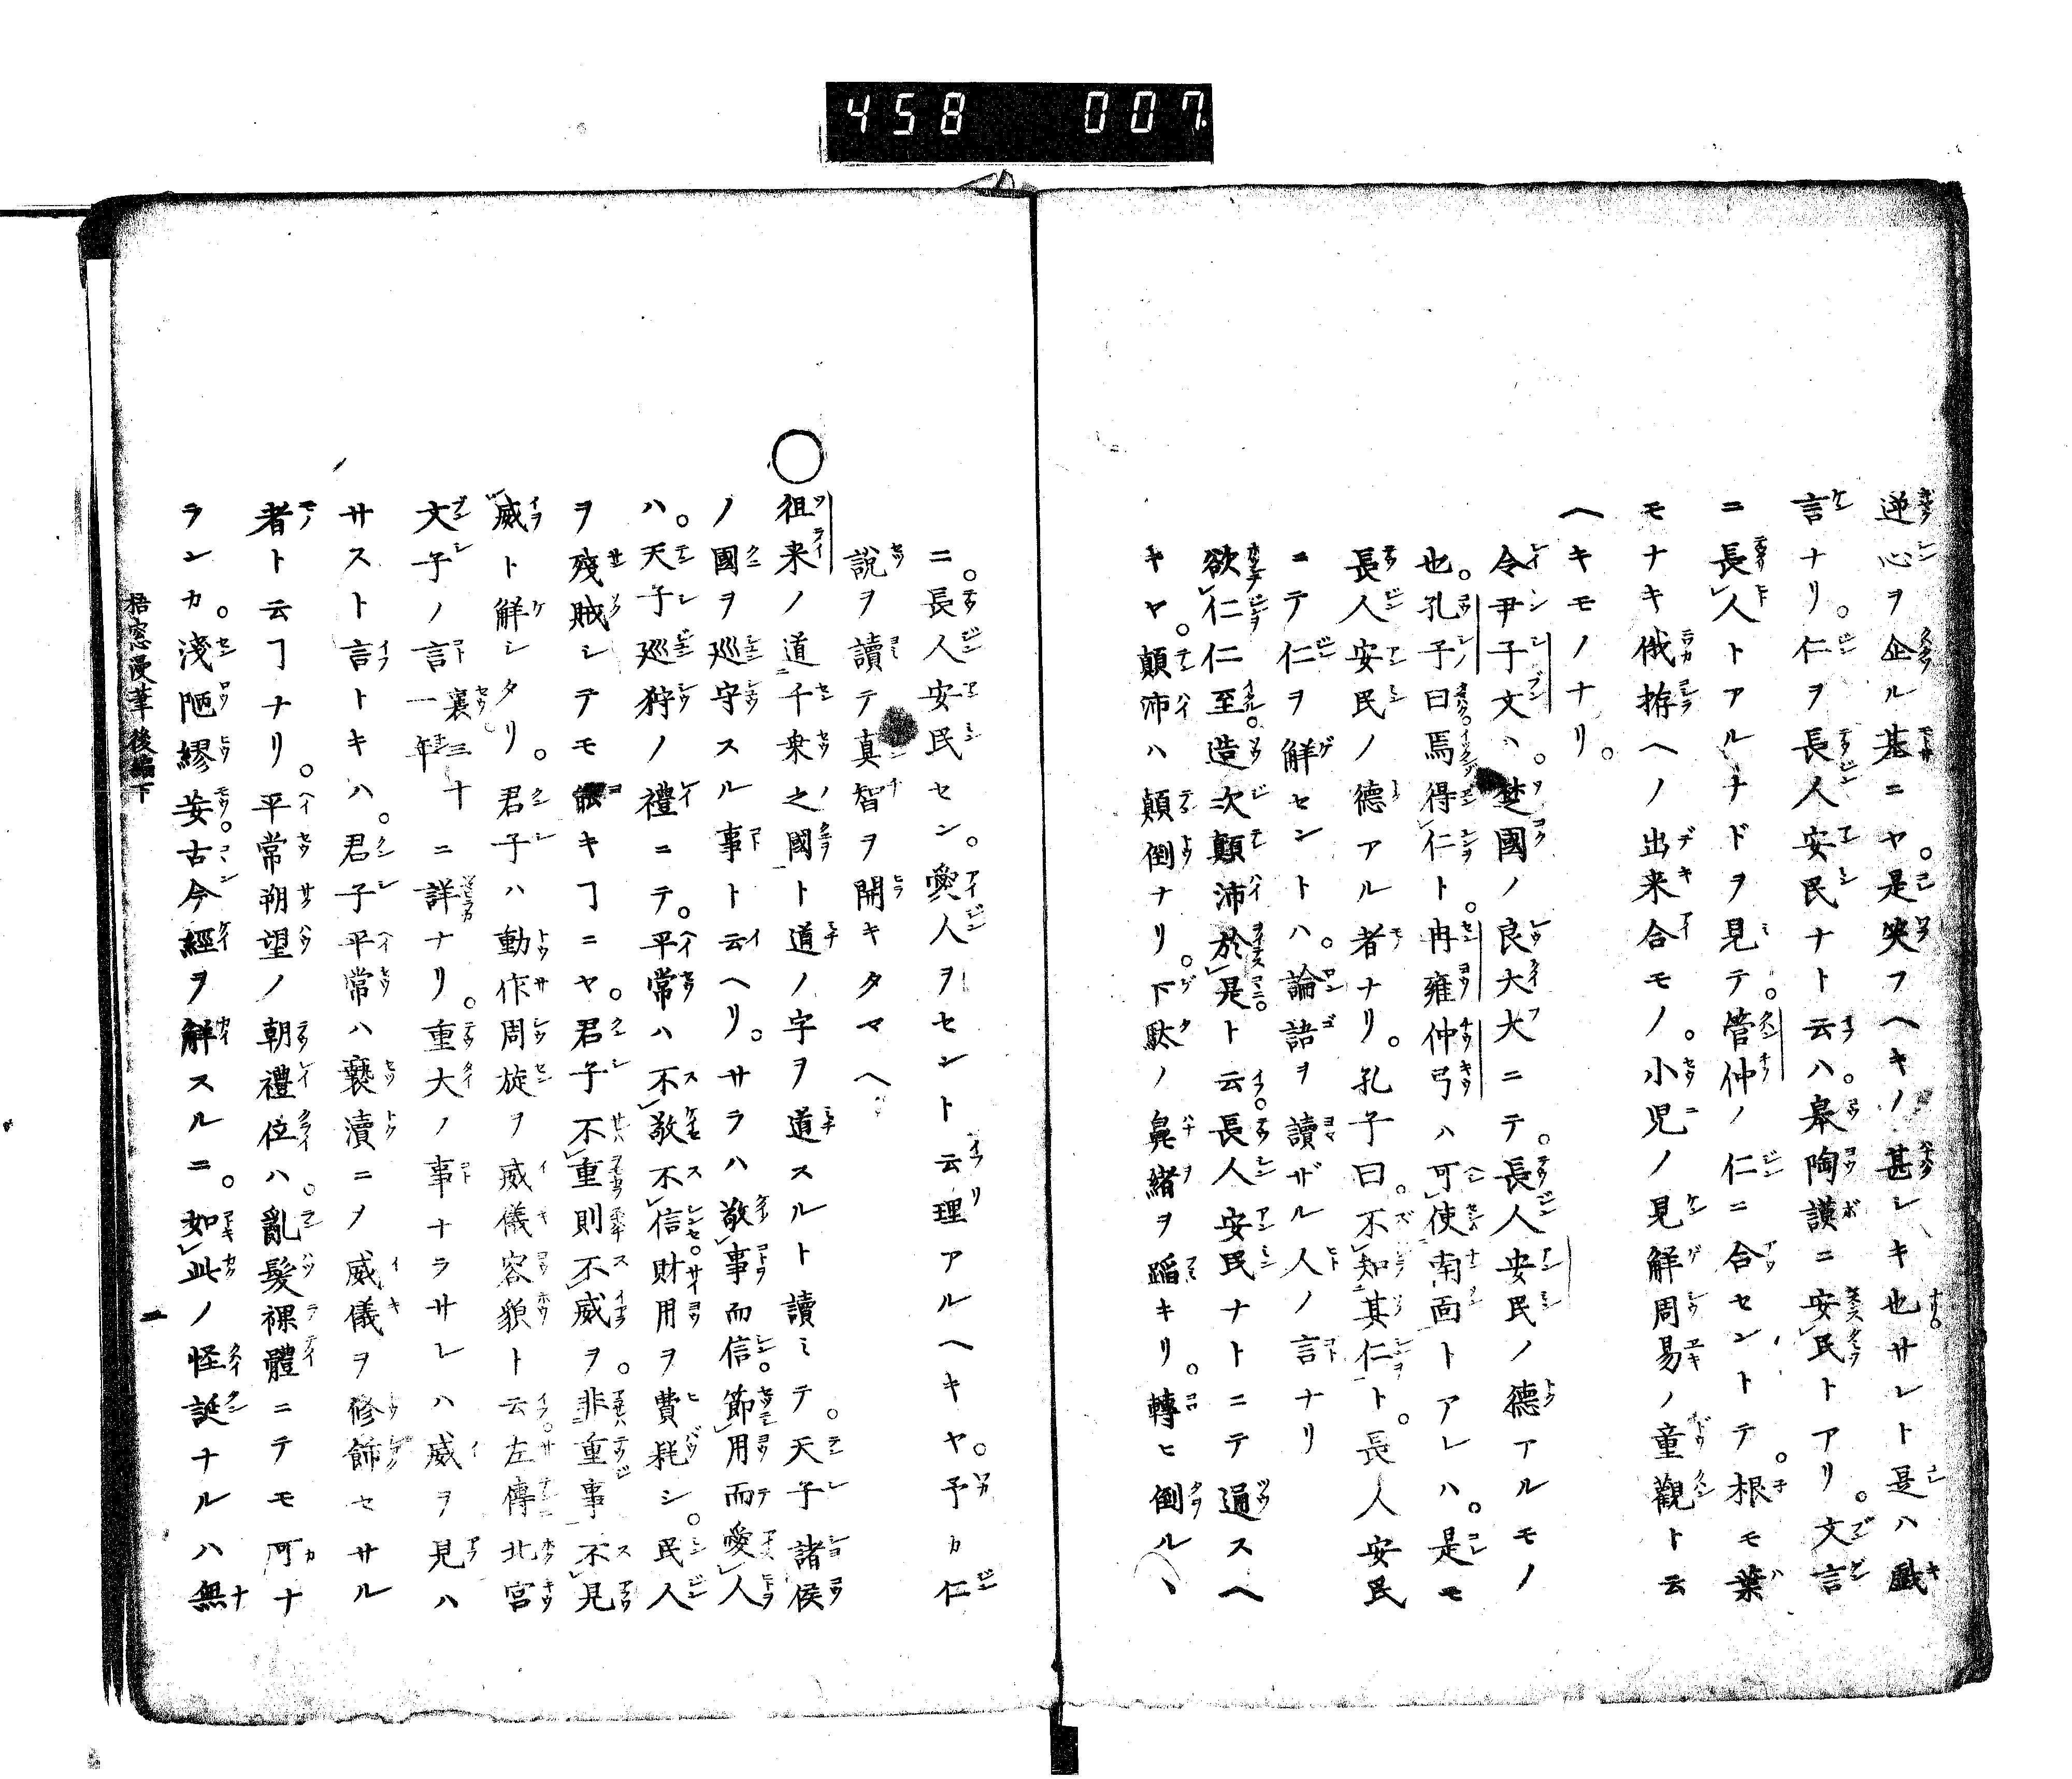 458 007
逆心ヲ企ル基ニヤ。是笑フヘキノ甚シキ也サレト是ハ戯
言ナリ。仁ヲ長人安民ナト云ハ。皋陶謨ニ安民トアリ。文言
ニ長人トアルナドヲ見テ。管仲ノ仁ニ合セントテ。根モ葉
モナキ俄拵ヘノ出来合モノ。小児ノ見解周易ノ童觀ト云
ヘキモノナリ。
令尹子文ハ。楚國ノ良大夫ニテ。長人安民ノ德アルモノ
也。孔子曰。焉得仁ト。冉雍仲弓ハ可使南面トアレハ。是モ
長人安民ノ德アル者ナリ。孔子曰。不知其仁ト。長人安民
ニテ仁ヲ解セントハ。論語ヲ讀ザル人ノ言ナリ
欲仁仁至。造次顛沛於是ト云。長人安民ナトニテ通スヘ
キヤ。顛沛ハ顛倒ナリ。下駄ノ鼻緒ヲ蹈キリ。轉ヒ倒ルヽ
ニ。長人安民セン。愛人ヲセント云理アルヘキヤ。予カ仁
說ヲ讀テ真智ヲ開キタマヘ。
○徂来ノ道千乗之國ト道ノ字ヲ道スルト讀ミテ。天子諸侯
ノ國ヲ巡守スル事ト云ヘリ。サラハ敬事而信。節用而愛人
ハ。天子巡狩ノ禮ニテ。平常ハ不敬不信。財用ヲ費耗シ。民人
ヲ殘賊シテモ能キヿニヤ。君子不重則不威ヲ。非重事不見
威ト解シタリ。君子ハ動作周旋ヲ威儀容貌ト云。左傳北宮
文子ノ言襄三十一年ニ詳ナリ。重大ノ事ナラサレハ威ヲ見ハ
サスト言トキハ。君子平常ハ褻瀆ニヲ威儀ヲ修飾セサル
者ト云ヿナリ。平常朔望ノ朝禮位ハ。亂髮裸體ニテモ可ナ
ランカ。淺陋繆妄。古今經ヲ解スルニ。如此ノ怪誕ナルハ無
梧窓漫筆後編下
二